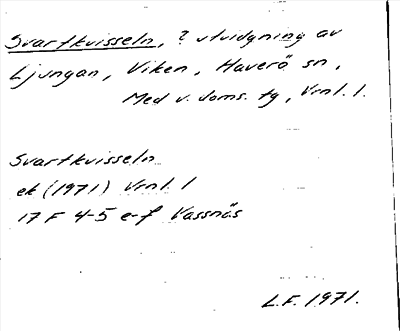 Svartkvisseln, ? utvidgning av
Ljungan, Viken, Haverö sn,
Med v. doms. tg, Vrnl. l.
Svartkvisseln
ek (1971) Vrnl. l
17 F 4-5 e-f Vassnäs
L.F. 1971.